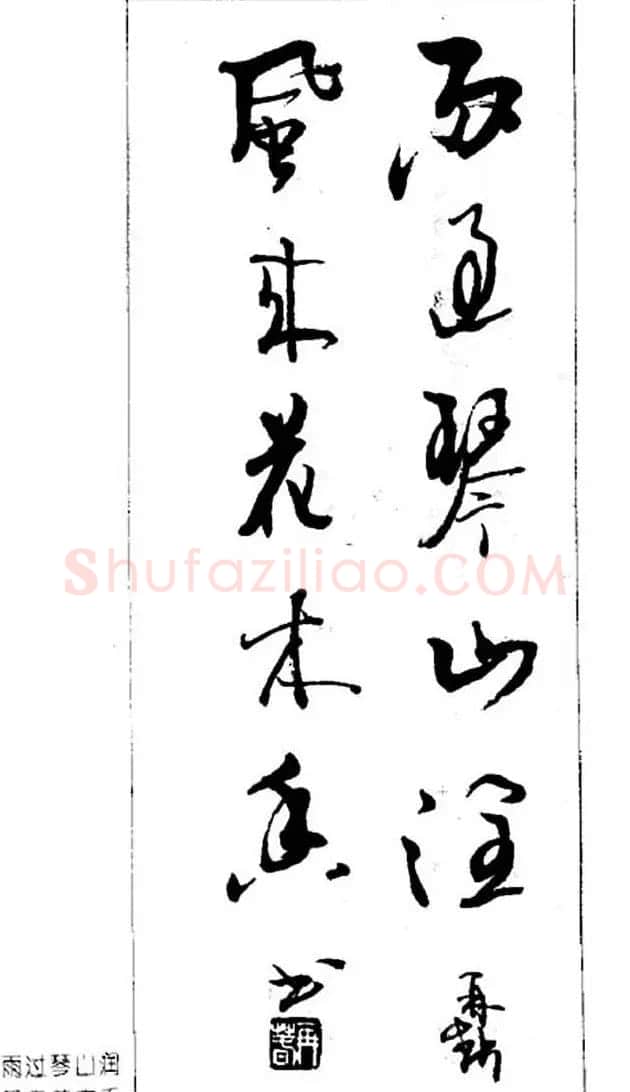 雨过琴山润
風来花木香
书
Shufaziliao.COM
雨过琴山润